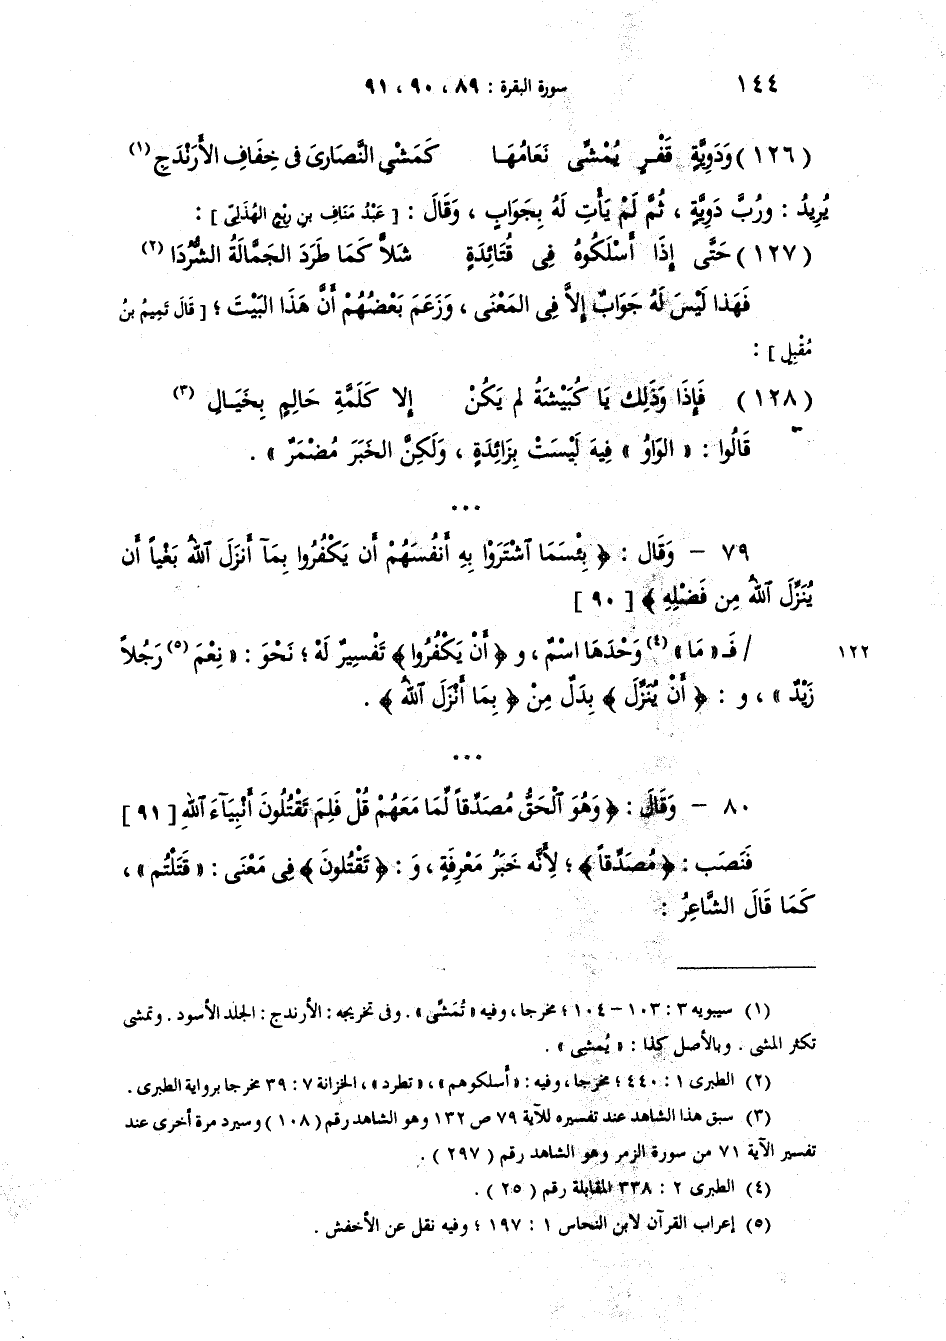 ١٤٤ سورة البقرة : ٨٩ ، ٩٠ ، ٩١
(١٢٦) وَدَوِيَّةٍ قَفْرٍ يُمْشَّى نَعَامُهَا كَمَشْىِ النَّصَارَىَ فى خِفَافِ الأَرَنْدَجِ (١)
يُرِيدُ : ورُبَّ دَوِيَّةٍ ، ثُمَّ لَمْ يَأْتِ لَهُ بِجَوَابٍ ، وَقَالَ : [ عَبْدُ مَنَافِ بنِ رِبْعٍ الهُذَلِىّ ] :
(١٢٧) حَتَّى إِذَا أَسْلَكُوهُ فِى قُتَائِدَةٍ شَلاًّ كَمَا طَرَدَ الجَمَّالَةُ الشُّرُدَا (٢)
فَهَذا لَيْسَ لَهُ جَوَابٌ إِلاَّ فِى المَعْنَى ، وَزَعَمَ بَعْضُهُمْ أَنَّ هَذَا البَيْتَ ؛ [ قَالَ تَمِيمُ بنُ
مُقْبِلِ ] :
(١٢٨) فَإِذَا وَذَلِك يَا كُبَيْشَةُ لم يَكُنْ إلا كَلَمَّةِ حَالِمٍ بِخَيَـالِ (٣)
قَالُوا : « الوَاوُ » فِيهَ لَيْسَتْ بِزَائِدَةٍ ، وَلَكِنَّ الخَبَرَ مُضْمَرٌ » .
...
٧٩ – وَقَال : ﴿ بِئْسَمَا ٱشْتَرَوْا بِهِ أَنفُسَهُمْ أَن يَكْفُرُوا بِمَآ أَنزَلَ ٱللهُ بَغْياً أَن
يُنَزِّلَ ٱللهُ مِن فَضْلِهِ ﴾ [ ٩٠ ]
١٢٢ / فَـ « مَا » (٤) وَحْدَهَا اسْمٌ ، و ﴿ أَنْ يَكْفُرُوا ﴾ تَفْسِيرٌ لَهْ ؛ نَحْوَ : « نِعْمَ (٥) رَجُلاً
زَيْدٌ » ، و : ﴿ أَنْ يُنَزِّلَ ﴾ بِدَلٌ مِنْ ﴿ بِمَا أَنْزَلَ ٱللهُ ﴾ .
...
٨٠ – وَقَالَ : ﴿ وَهُوَ ٱلْحَقُّ مُصَدِّقاً لِّمَا مَعَهُمْ قُلْ فَلِمَ تَقْتُلُونَ أَنْبِيَآءَ ٱللهِ [ ٩١ ]
فَنَصَب : ﴿ مُصَدِّقاً ﴾ ؛ لِأَنَّه خَبَرُ مَعْرِفَةٍ ، وَ : ﴿ تَقْتُلونَ ﴾ فِى مَعْنَى : « قَتَلْتُم » ،
كَمَا قَالَ الشَّاعِرُ :
(١) سيبويه ٣ : ١٠٣ – ١٠٤ ؛ مخرجا ، وفيه « تُمَشِّى » . وفى تخريجه : الأرندج : الجلد الأسود . وتمشى
تكثر المشى . وبالأصل كذا : « يُمشى » .
(٢) الطبرى ١ : ٤٤٠ ؛ مخرجا ، وفيه : « أسلكوهم » ، « تطرد » ، الخزانة ٧ : ٣٩ مخرجا برواية الطبرى .
(٣) سبق هذا الشاهد عند تفسيره للآية ٧٩ ص ١٣٢ وهو الشاهد رقم ( ١٠٨ ) وسيرد مرة أخرى عند
تفسير الآية ٧١ من سورة الزمر وهو الشاهد رقم ( ٢٩٧ ) .
(٤) الطبرى ٢ : ٣٣٨ المقابلة رقم ( ٢٥ ) .
(٥) إعراب القرآن لابن النحاس ١ : ١٩٧ ؛ وفيه نقل عن الأخفش .